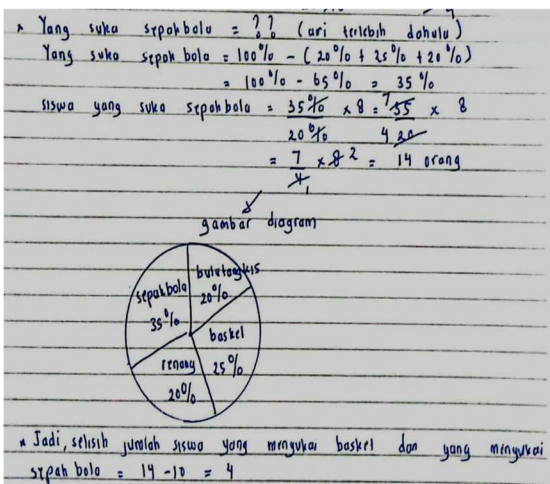 * Yang suka sepak bola = ?? (cari terlebih dahulu)
Yang suka sepak bola = 100% - (20% + 25% + 20%)
= 100% - 65% = 35%
siswa yang suka sepak bola = 35% / 20% x 8 = 7 35 / 4 20 x 8
= 7/4 x 8 2 = 14 orang
1
gambar diagram
bulutangkis
20%
sepak bola
35%
basket
25%
renang
20%
* Jadi, selisih jumlah siswa yang menyukai basket dan yang menyukai
sepak bola = 14 - 10 = 4